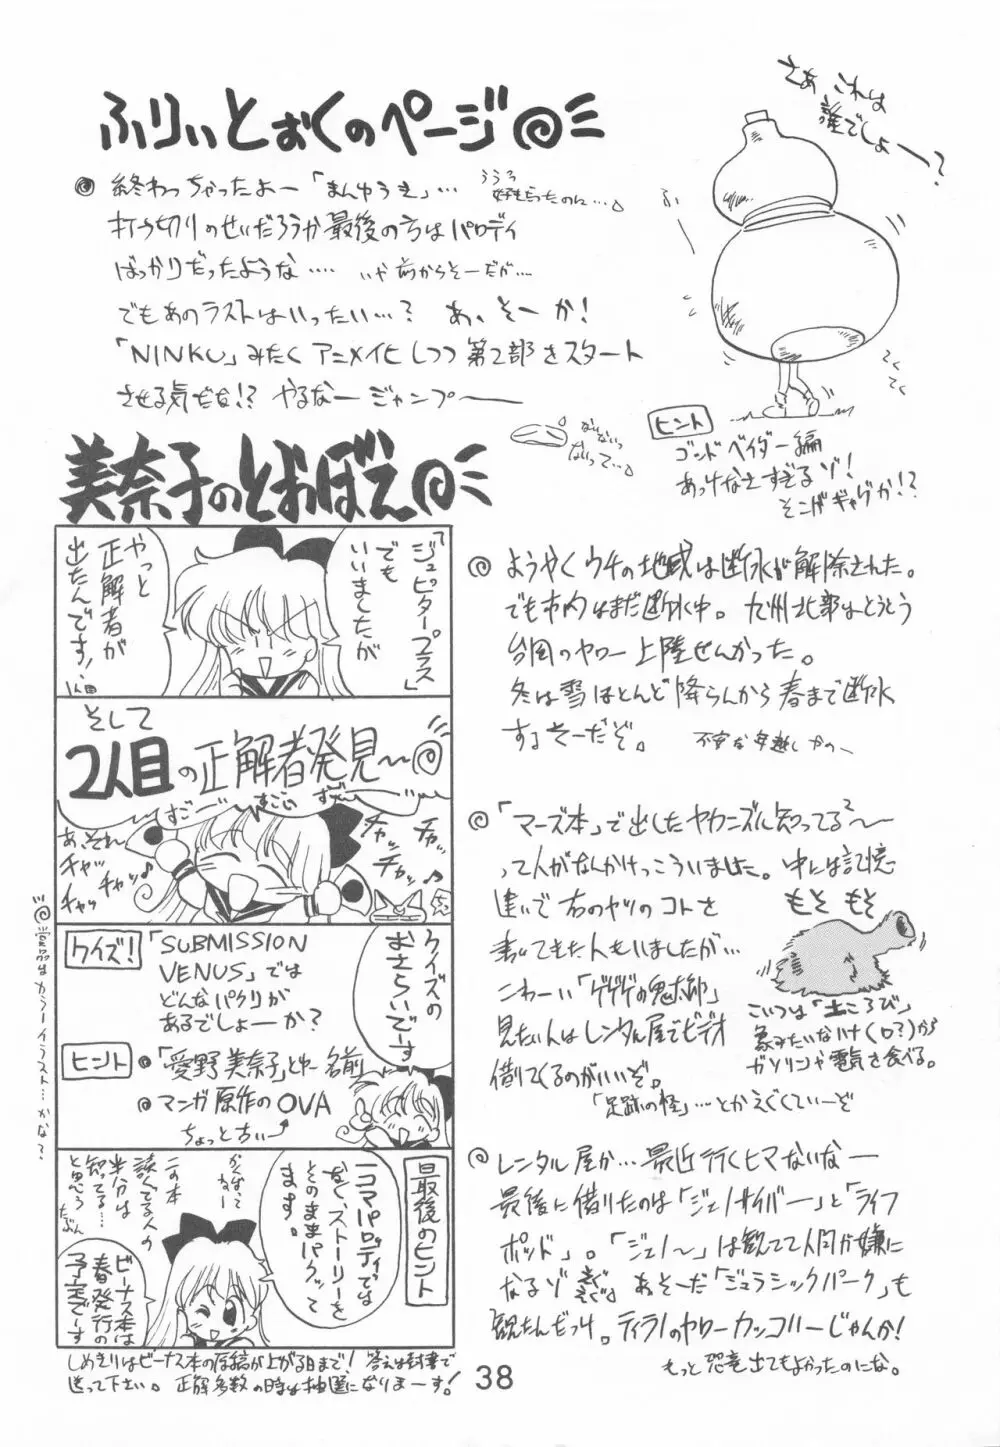 ふりぃとぉくのページ
さあ これは
誰でしょー？
終わっちゃったよー「まんゆうき」…
打ち切りのせいだろうか最後の方はパロディ
ばっかりだったような…. いや前からそーだが….
でもあのラストはいったい…？ あ、そーか！
「NINKU」みたく アニメイ化しつつ第2部をスタート
させる気だな!? やるなー ジャンプ〜
ヒント
ゴンドベイダー編
あっけなさすぎるゾ！
そこがギャグか!?
美奈子のとおぼえ
「ジュピタープラス」
でも
いいましたが
やっと
正解者が
出たんです！
そして
2人目の正解者発見〜
すごーい すごい
あ、それ
チャッ
チャッ♪
チャッ
クイズの
おさらいでーす
クイズ！
「SUBMISSION
VENUS」では
どんなパクリが
あるでしょーか？
ヒント
「愛野美奈子」とゆー名前
マンガ原作のOVA
ちょっと古い
最後のヒント
一コマパロディでは
なく、ストーリーを
そのままパクって
ます。
この本
読んでる人の
半分は
知ってる…
と思う
たぶん
ビーナス本は
春発行の
予定でーす
しめきりはビーナス本の原稿が上がる日まで！ 答えは封書で
送って下さい。 正解多数の時は抽選になりまーす！
賞品はカラーイラスト…かな？
ようやくウチの地域は断水が解除された。
でも市内はまだ断水中。 九州北部はとうとう
台風のヤロー上陸せんかった。
冬は雪ほとんど降らんから春まで断水
するそーだぞ。
「マーズ本」で出したヤカニズル知ってる〜
って人がなんかけっこういました。中には記憶
違いで右のヤツのコトを
書いてきた人もいましたが…
こわーい「ゲゲゲの鬼太郎」
見たい人はレンタル屋でビデオ
借りてくるのがいいぞ。
「足跡の怪」…とかえぐくていーぞ
もそ もそ
こいつは「土ころび」
象みたいなハナ(口?)から
ガソリンや電気を食べる。
レンタル屋か…最近行くヒマないなー
最後に借りたのは「ジェノサイバー」と「ライフ
ポッド」。「ジェノ〜」は観てて人間が嫌に
なるゾ あ、そーだ「ジュラシックパーク」も
観たんだっけ。ティラノのヤローカッコいーじゃんか！
もっと恐竜出てもよかったのにな。
38